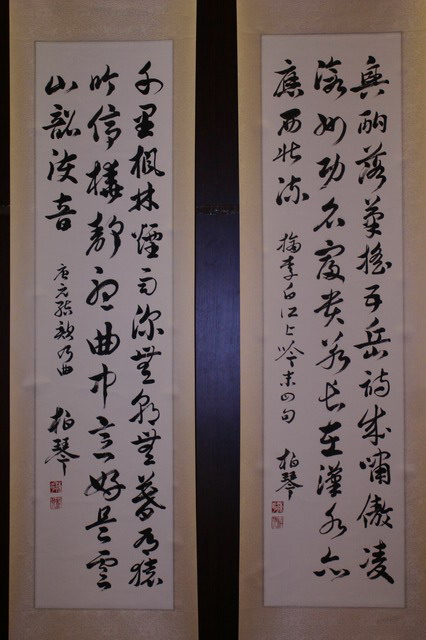 興酣落筆搖五岳詩成嘯傲凌
滄洲功名富貴若長在漢水亦
應西北流
李白江上吟末四句
柏琴
千里楓林煙雨深無朝無暮有猿
吟停橈靜聽曲中意好是雲
山韶濩音
唐元結欸乃曲
柏琴